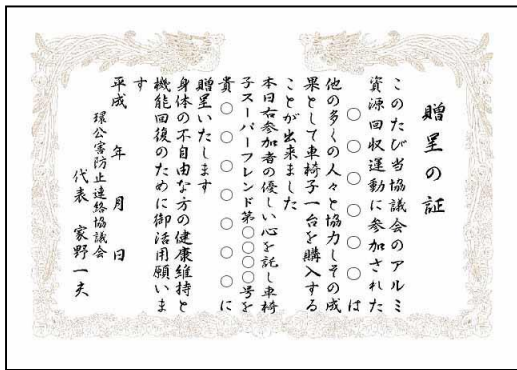 贈呈の証
このたび当協議会のアルミ
資源回収運動に参加された
〇〇〇〇〇〇は
他の多くの人々と協力しその成
果として車椅子一台を購入する
ことが出来ました
本日右参加者の優しい心を託し車椅
子スーパーフレンド第〇〇〇〇号を
貴〇〇〇〇〇〇に
贈呈いたします
身体の不自由な方の健康維持と
機能回復のために御活用願いま
す
平成 年 月 日
環公害防止連絡協議会
代表 家野一夫